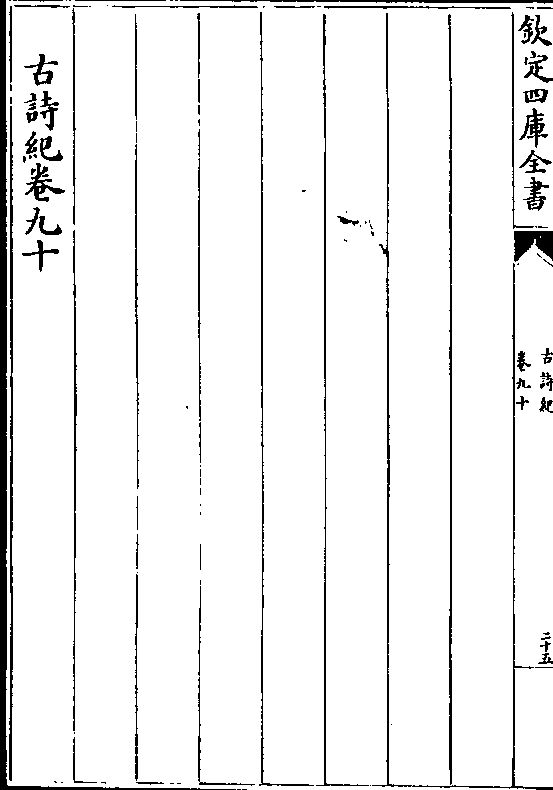 欽定四庫全書
古詩紀
卷九十
二十五
古詩紀卷九十